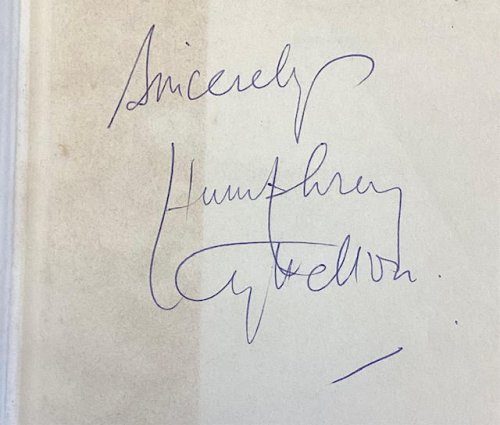 Sincerely
Humphrey
Lyttelton.